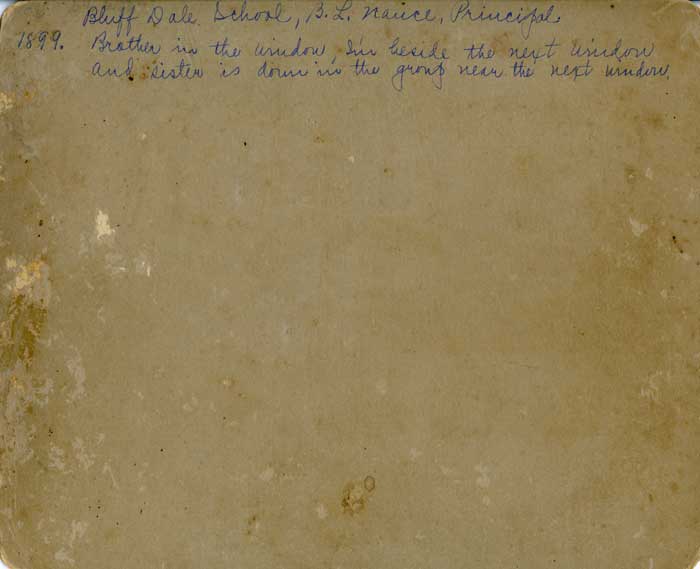 Bluff Dale School, B. L. Nance, Principal.
1899. Brother in the window, I'm beside the next window
and sister is down in the group near the next window.